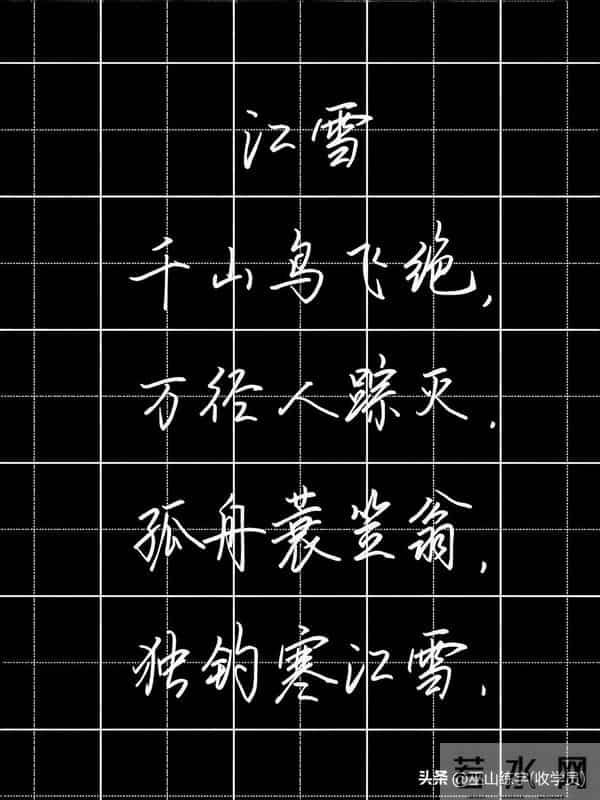 江雪
千山鸟飞绝,
万径人踪灭.
孤舟蓑笠翁,
独钓寒江雪.
若水网
头条 @巫山练字(收学员)